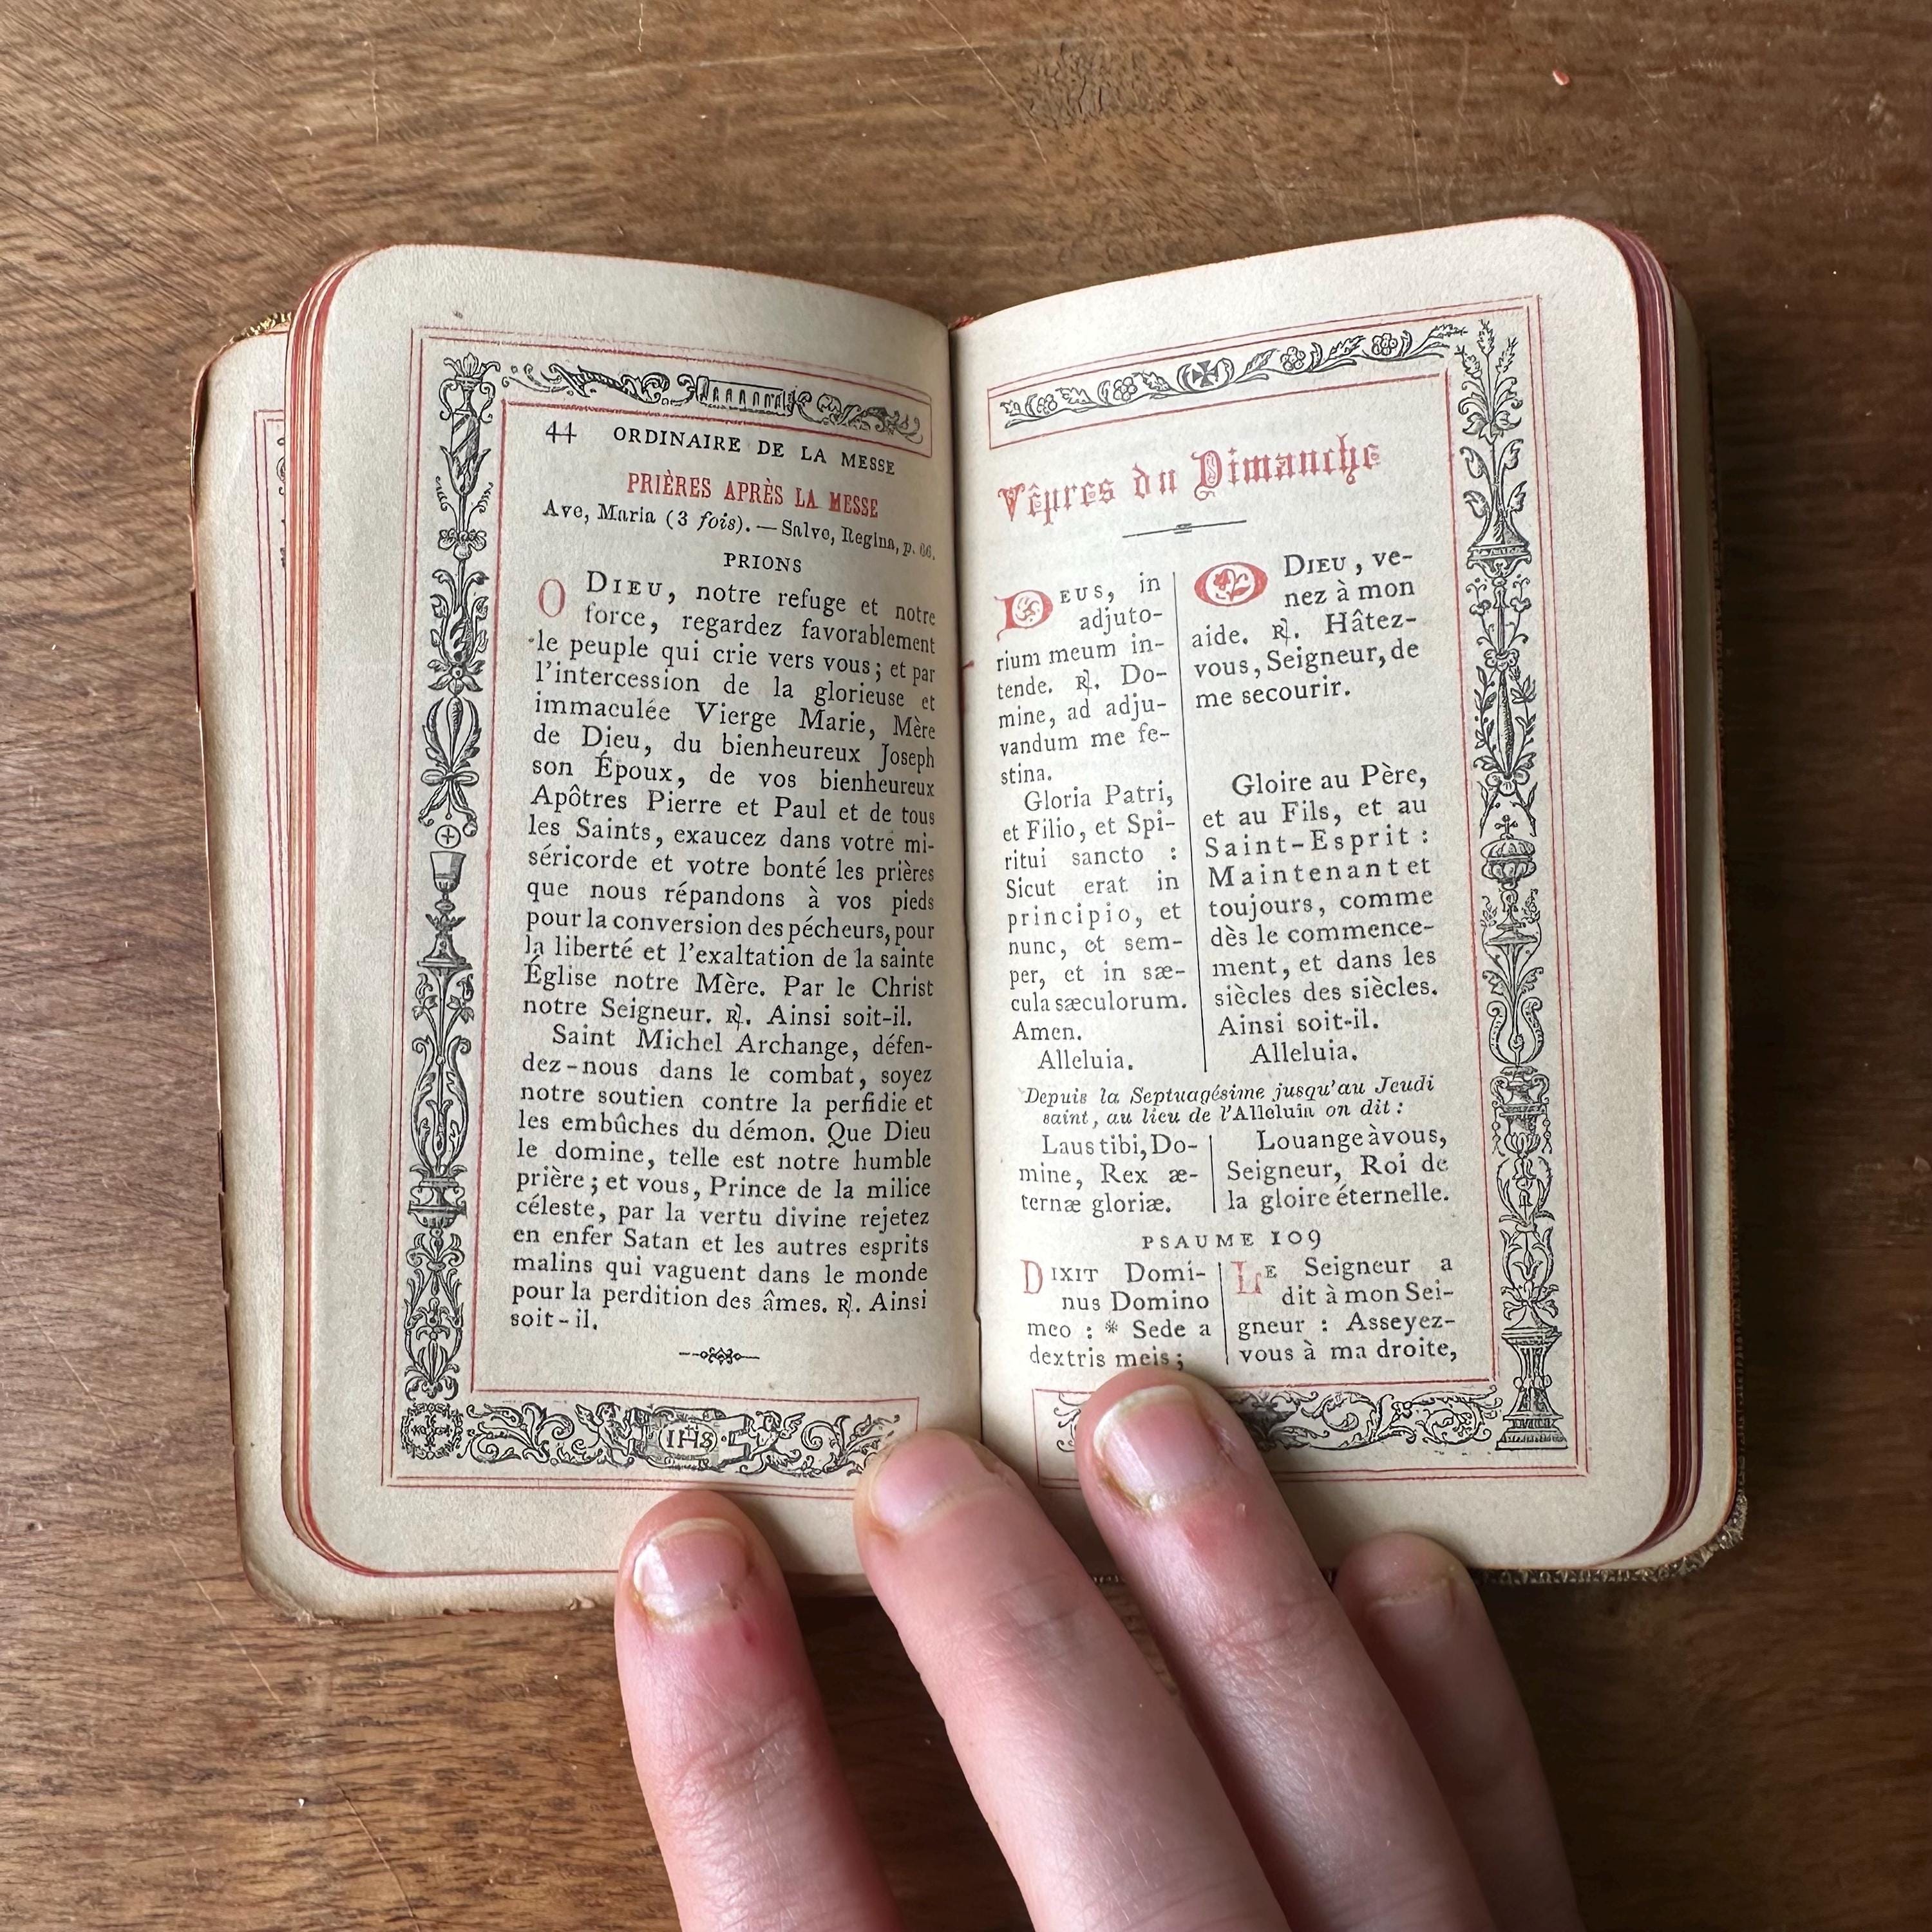 44 ORDINAIRE DE LA MESSE
PRIÈRES APRÈS LA MESSE
Ave, Maria (3 fois). — Salve, Regina, p. 66.
PRIONS
O DIEU, notre refuge et notre
force, regardez favorablement
le peuple qui crie vers vous ; et par
l'intercession de la glorieuse et
immaculée Vierge Marie, Mère
de Dieu, du bienheureux Joseph
son Époux, de vos bienheureux
Apôtres Pierre et Paul et de tous
les Saints, exaucez dans votre mi-
séricorde et votre bonté les prières
que nous répandons à vos pieds
pour la conversion des pécheurs, pour
la liberté et l'exaltation de la sainte
Église notre Mère. Par le Christ
notre Seigneur. ℟. Ainsi soit-il.
Saint Michel Archange, défen-
dez-nous dans le combat, soyez
notre soutien contre la perfidie et
les embûches du démon. Que Dieu
le domine, telle est notre humble
prière ; et vous, Prince de la milice
céleste, par la vertu divine rejetez
en enfer Satan et les autres esprits
malins qui vaguent dans le monde
pour la perdition des âmes. ℟. Ainsi
soit-il.
IHS
Vêpres du Dimanche
DEUS, in
adjuto-
rium meum in-
tende. ℟. Do-
mine, ad adju-
vandum me fe-
stina.
Gloria Patri,
et Filio, et Spi-
ritui sancto :
Sicut erat in
principio, et
nunc, et sem-
per, et in sæ-
cula sæculorum.
Amen.
Alleluia.
O DIEU, ve-
nez à mon
aide. ℟. Hâtez-
vous, Seigneur, de
me secourir.
Gloire au Père,
et au Fils, et au
Saint-Esprit :
Maintenant et
toujours, comme
dès le commence-
ment, et dans les
siècles des siècles.
Ainsi soit-il.
Alleluia.
Depuis la Septuagésime jusqu'au Jeudi
saint, au lieu de l'Alleluia on dit :
Laus tibi, Do-
mine, Rex æ-
ternæ gloriæ.
Louange à vous,
Seigneur, Roi de
la gloire éternelle.
PSAUME 109
DIXIT Domi-
nus Domino
meo : * Sede a
dextris meis ;
LE Seigneur a
dit à mon Sei-
gneur : Asseyez-
vous à ma droite,